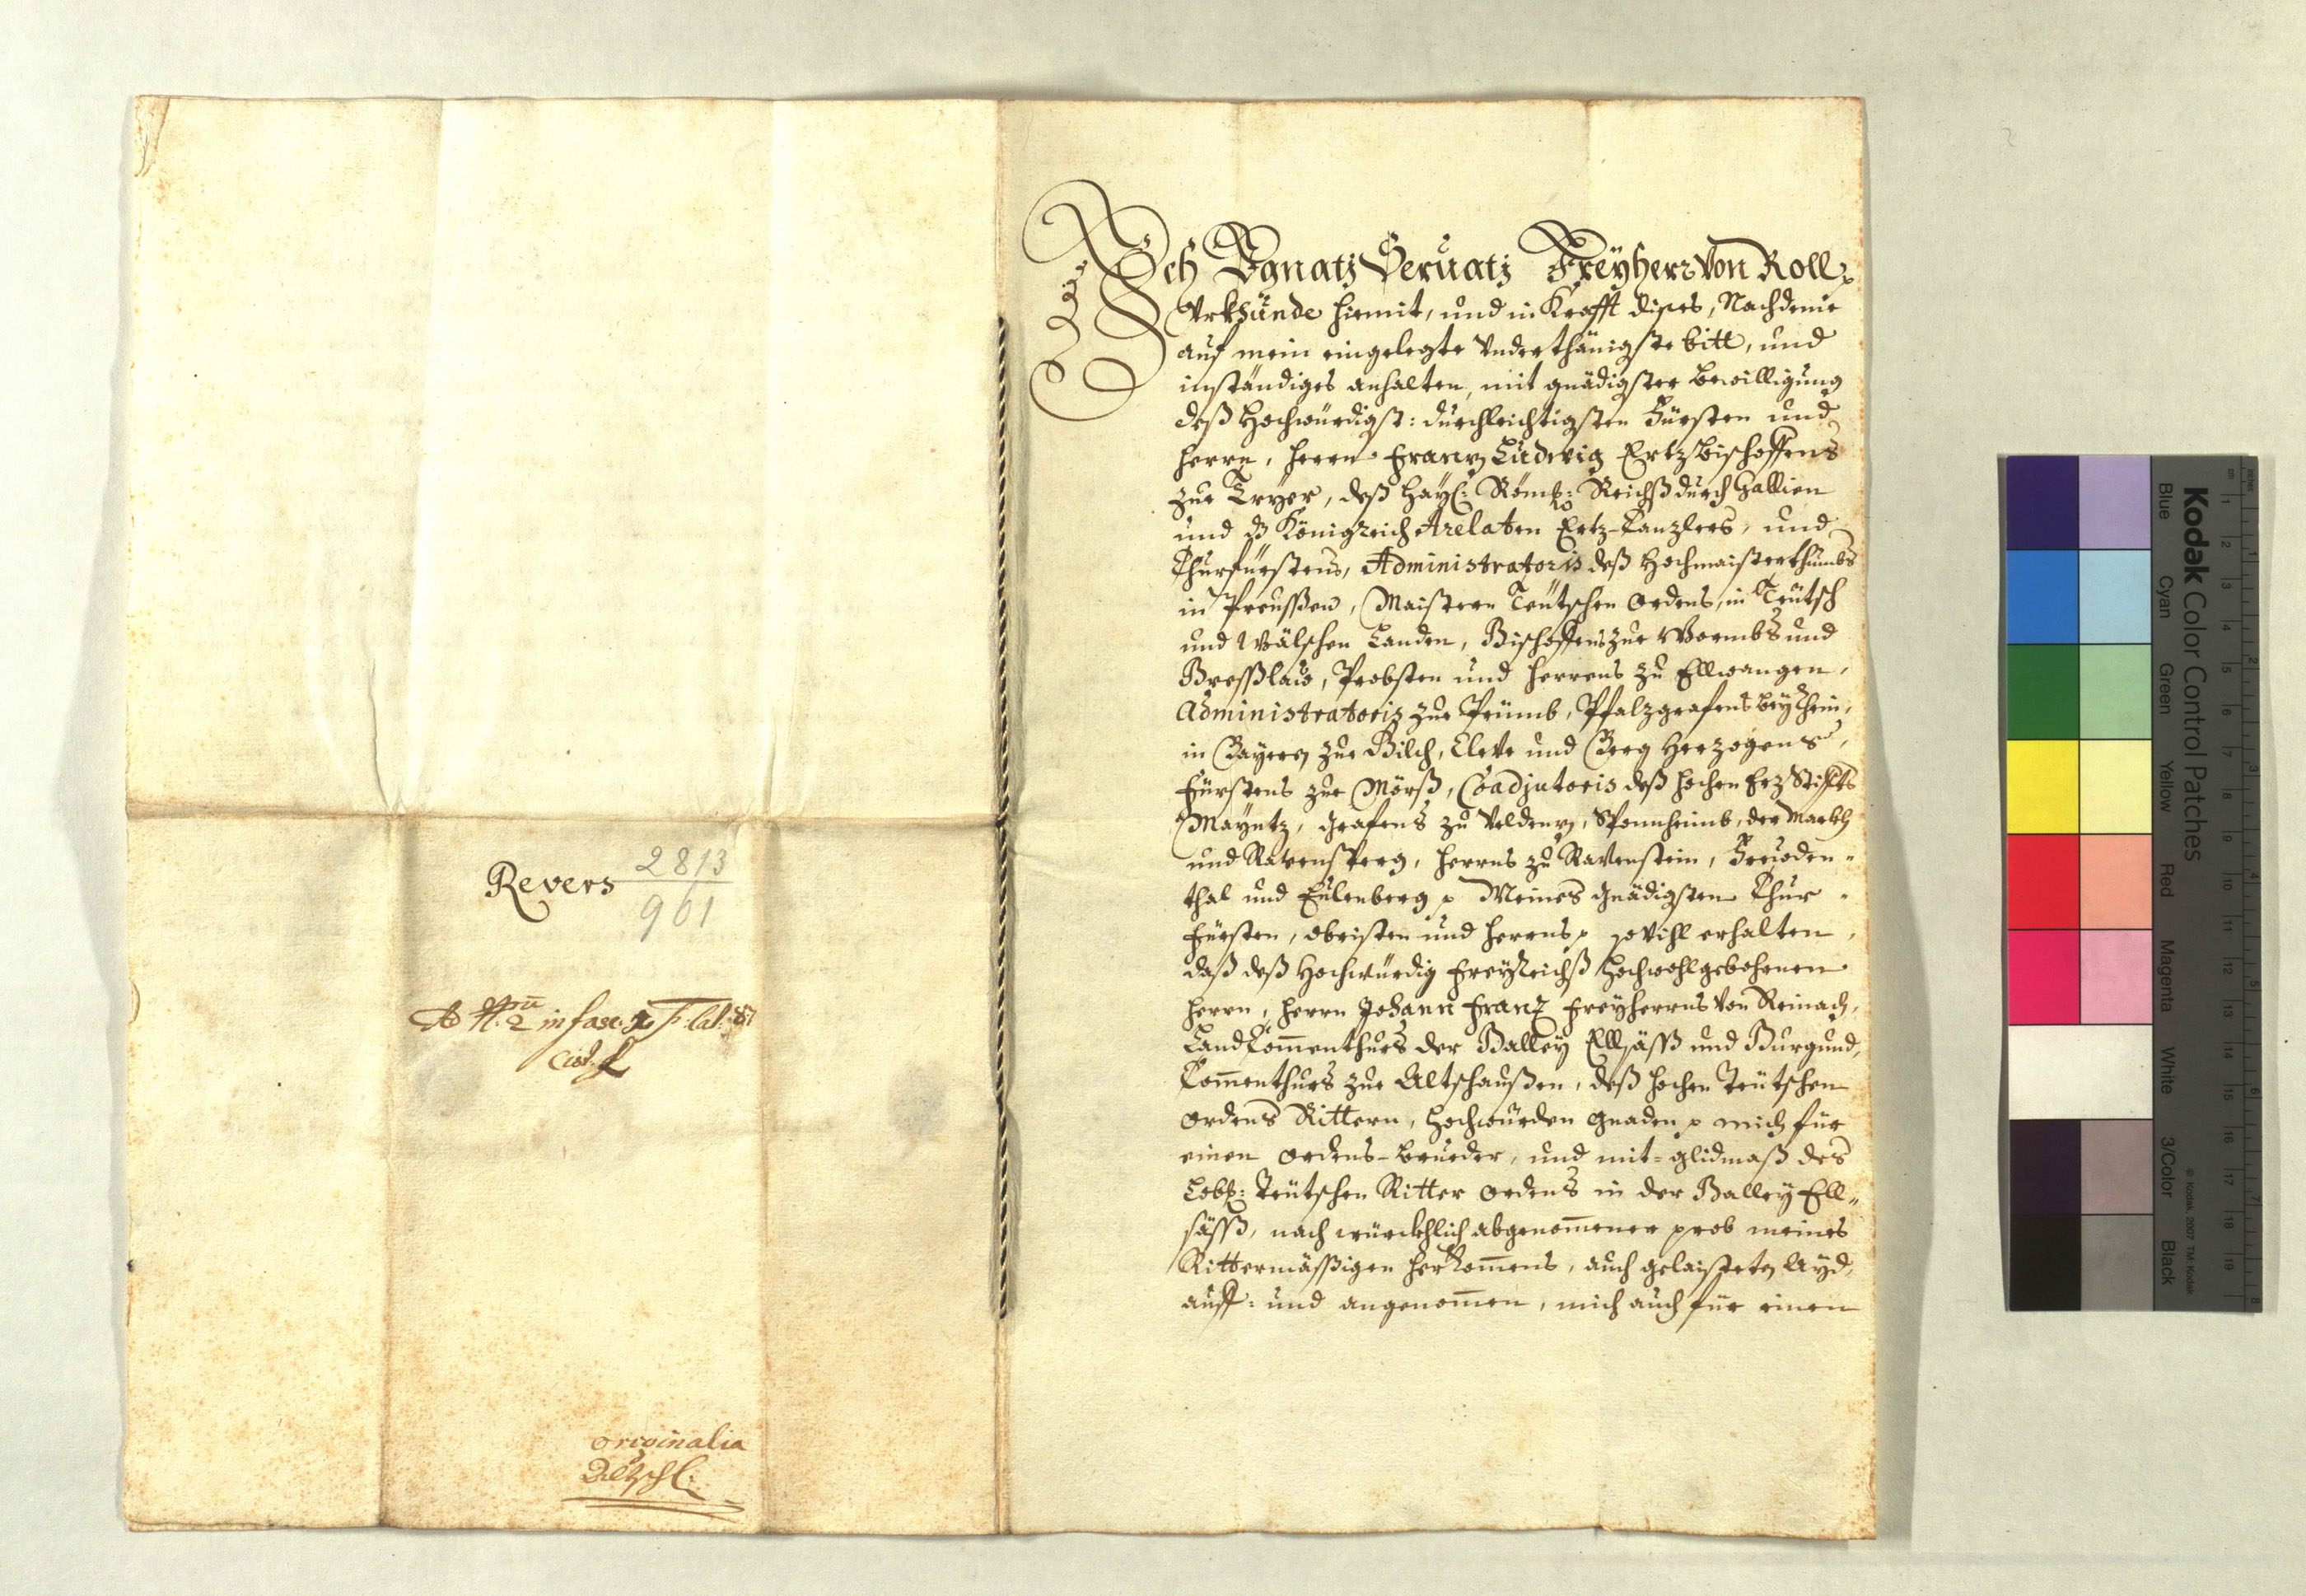 Revers 2813
961
Ad N. 2 in fasc.
Cist.
originalia
Ich Ignatz Servatz Freyherr Von Roll
Vrkhünde hiemit, und in Krafft dises, Nachdeme
auf mein eingelegte Vnderthänigste bitt, und
inständiges anhalten, mit gnädigster bewilligung
deß Hochwürdigst: durchleichtigsten Fürsten und
Herrn, Herrn Frantz Ludwig Ertzbischoffens
zue Tryer, deß Hayl: Römb: Reichß durch Gallien
und d Königreich Arelaten Ertz-Canzlers, und
Churfürstens, Administratoris deß Hochmaisterthumbs
in Preussßen, Maistern Teütschen Ordens, in Teütsch
und Wälschen Landen, Bischoffens zue Wormbs und
Bresßlaw, Probsten und Herrens zu Ellwangen,
Administratoris zue Prümb, Pfalzgrafens bey Rhein,
in Bayern zue Gilch, Cleve und Berg Herzogens,
Fürstens zue Mörß, Coadjutoris deß hochen Erz Stiffts
Mayntz, Grafens zu Veldentz, Sponheimb, der Markh
und Ravensperg, Herrns zu Ravenstein, Freüden-
thal und Eulenberg p Meines Gnädigsten Chur-
Fürsten, Obristen und Herrns p sovihl erhalten,
daß deß Hochwürdig Freyreichß Hochwohlgebohrnen
Herrn, Herrn Johann Franz Freyherrns Von Reinach,
Land Com̄enthurs der Balley Ellsäss und Burgund,
Com̄enthurs zue Altschaußen, deß hochen Teütschen
Ordens Rittern, Hochwürden Gnaden p mich für
einen Ordens-brueder, und mit-glidmaß des
Lobl: Teütschen Ritter Ordens in der Balley Ell-
säss, nach würckhlich abgenom̄ener prob meines
Rittermässigen Herkom̄ens, auch gelaisteten Ayd,
auff: und angenom̄en, mich auch für einen